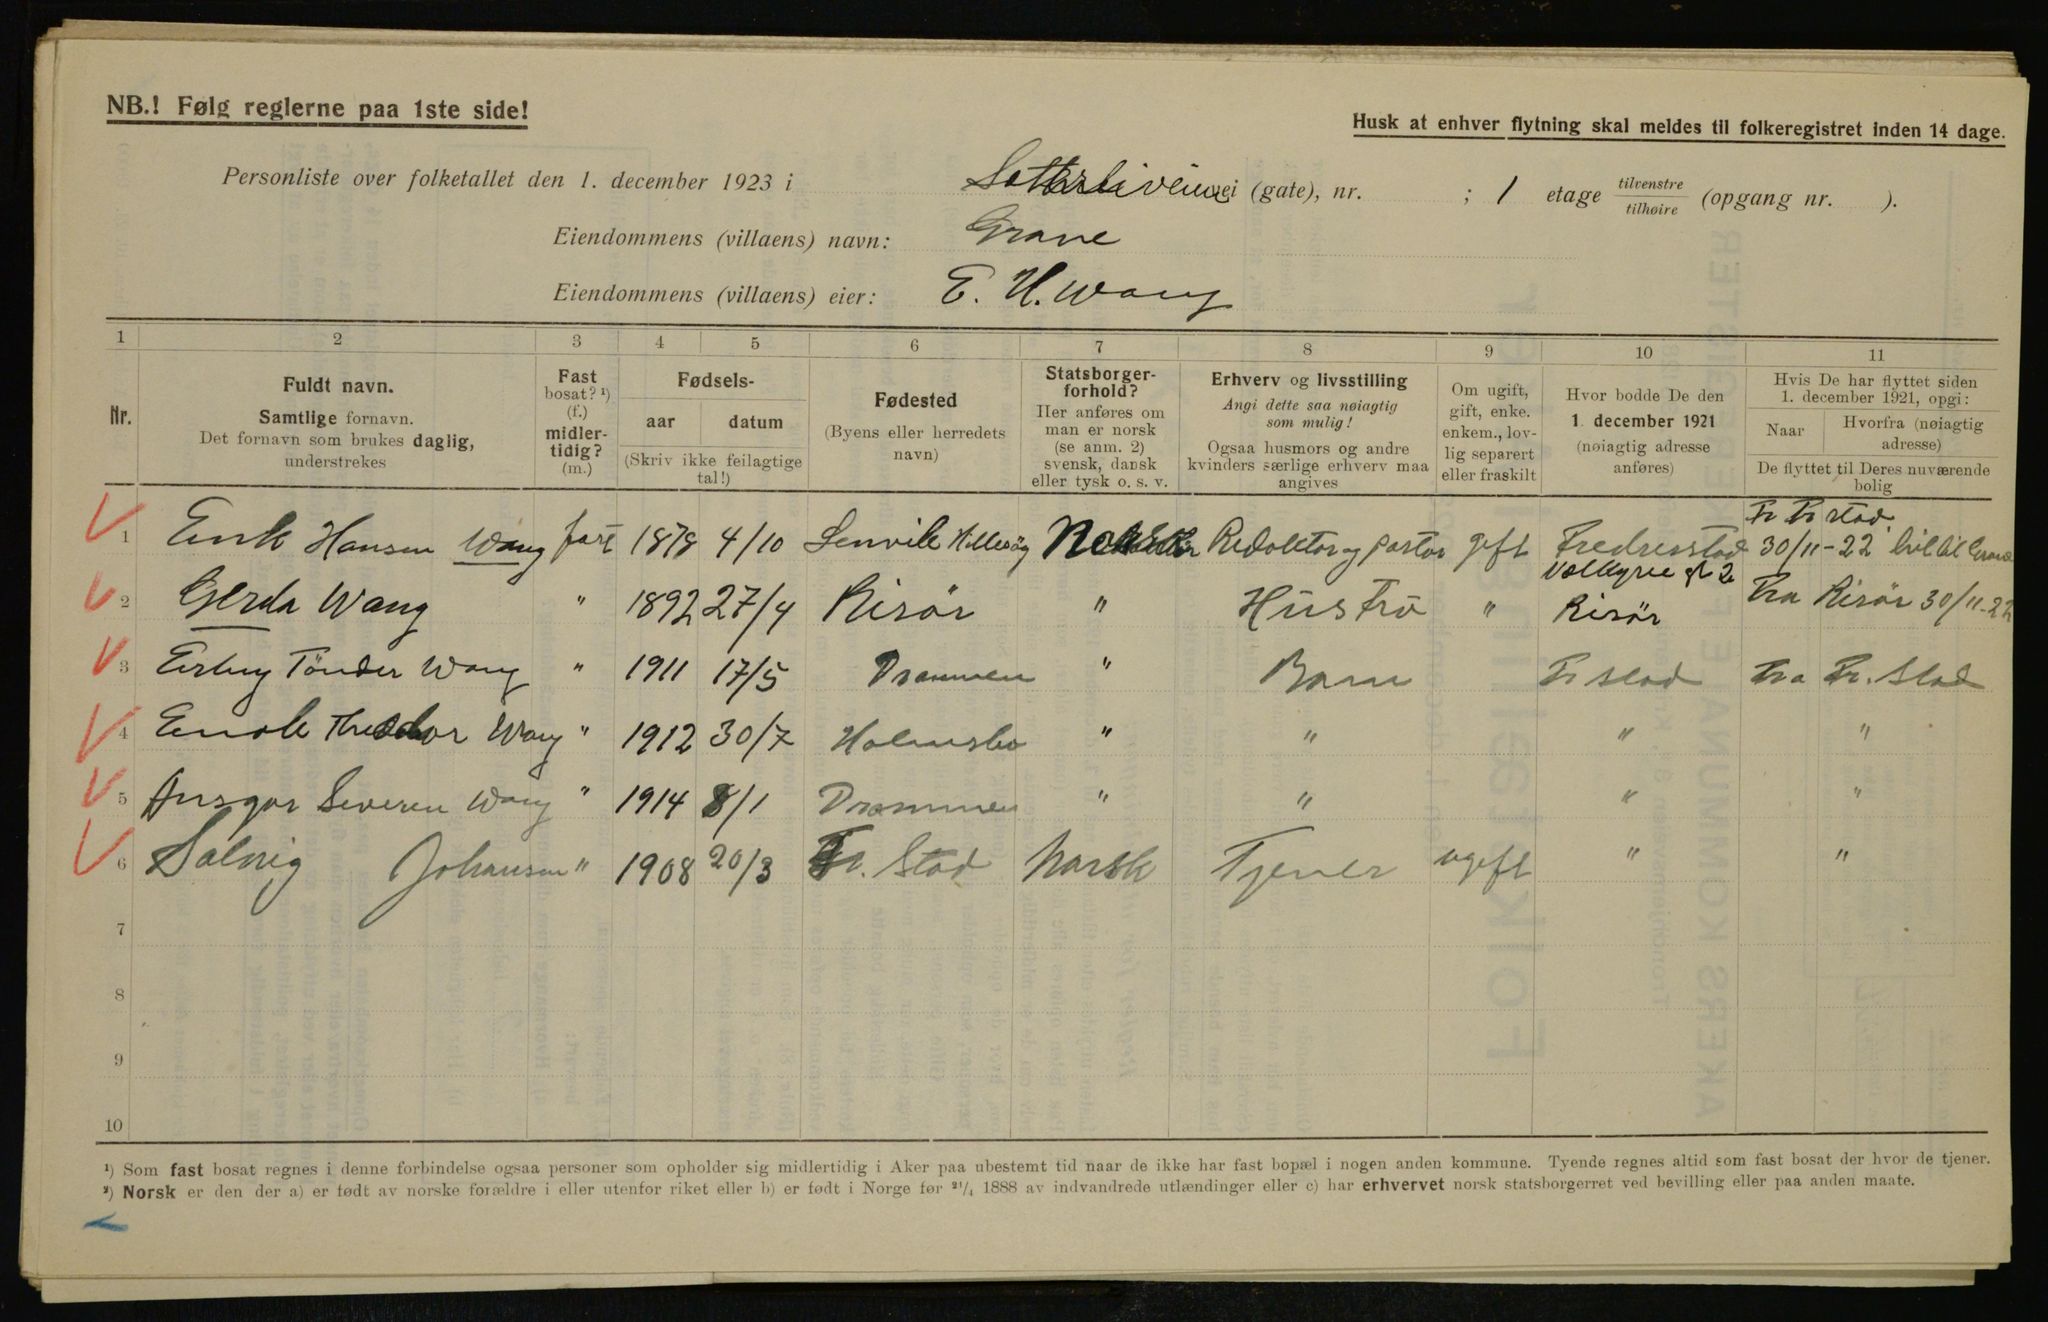 NB.! Følg reglerne paa 1ste side!
Husk at enhver flytning skal meldes til folkeregistret inden 14 dage.
Personliste over folketallet den 1. december 1923 i vei (gate), nr. ; 1 etage tilvenstre tilhøire (opgang nr. ).
Eiendommens (villaens) navn: Grane
Eiendommens (villaens) eier: E. H. Wang
1 2 3 4 5 6 7 8 9 10 11
Nr.
Fuldt navn.
Samtlige fornavn.
Det fornavn som brukes daglig,
understrekes
Fast
bosat? ¹)
(f.)
midler-
tidig?
(m.)
Fødsels-
aar datum
(Skriv ikke feilagtige
tal!)
Fødested
(Byens eller herredets
navn)
Statsborger-
forhold?
Her anføres om
man er norsk
(se anm. 2)
svensk, dansk
eller tysk o. s. v.
Erhverv og livsstilling
Angi dette saa nøiagtig
som mulig!
Ogsaa husmors og andre
kvinders særlige erhverv maa
angives
Om ugift,
gift, enke.
enkem., lov-
lig separert
eller fraskilt
Hvor bodde De den
1. december 1921
(nøiagtig adresse
anføres)
Hvis De har flyttet siden
1. december 1921, opgi:
Naar
Hvorfra (nøiagtig
adresse)
De flyttet til Deres nuværende
bolig
Fr Fr stad
1 Hansen Wang fast 1878 4/10 Lenvik Hillesøy Norsk og pastor gift Fredriksstad 30/11-22
gt 2
2 Gerda Wang " 1892 27/4 Risör " Hustru " Risör Fra Risör 30/11-22
3 Tönder Wang " 1911 17/5 Drammen " Barn Fr stad Fra Fr. Stad
4 Theodor Wang " 1912 30/7 Holmsbo " " " "
5 Ansgar Severin Wang " 1914 8/1 Drammen " " " "
6 Solveig Johansen " 1908 20/3 Fr. Stad Norsk Tjener ugift " "
7
8
9
10
¹) Som fast bosat regnes i denne forbindelse ogsaa personer som opholder sig midlertidig i Aker paa ubestemt tid naar de ikke har fast bopæl i nogen anden kommune. Tyende regnes altid som fast bosat der hvor de tjener.
²) Norsk er den der a) er født av norske forældre i eller utenfor riket eller b) er født i Norge før ²¹/₄ 1888 av indvandrede utlændinger eller c) har erhvervet norsk statsborgerret ved bevilling eller paa anden maate.